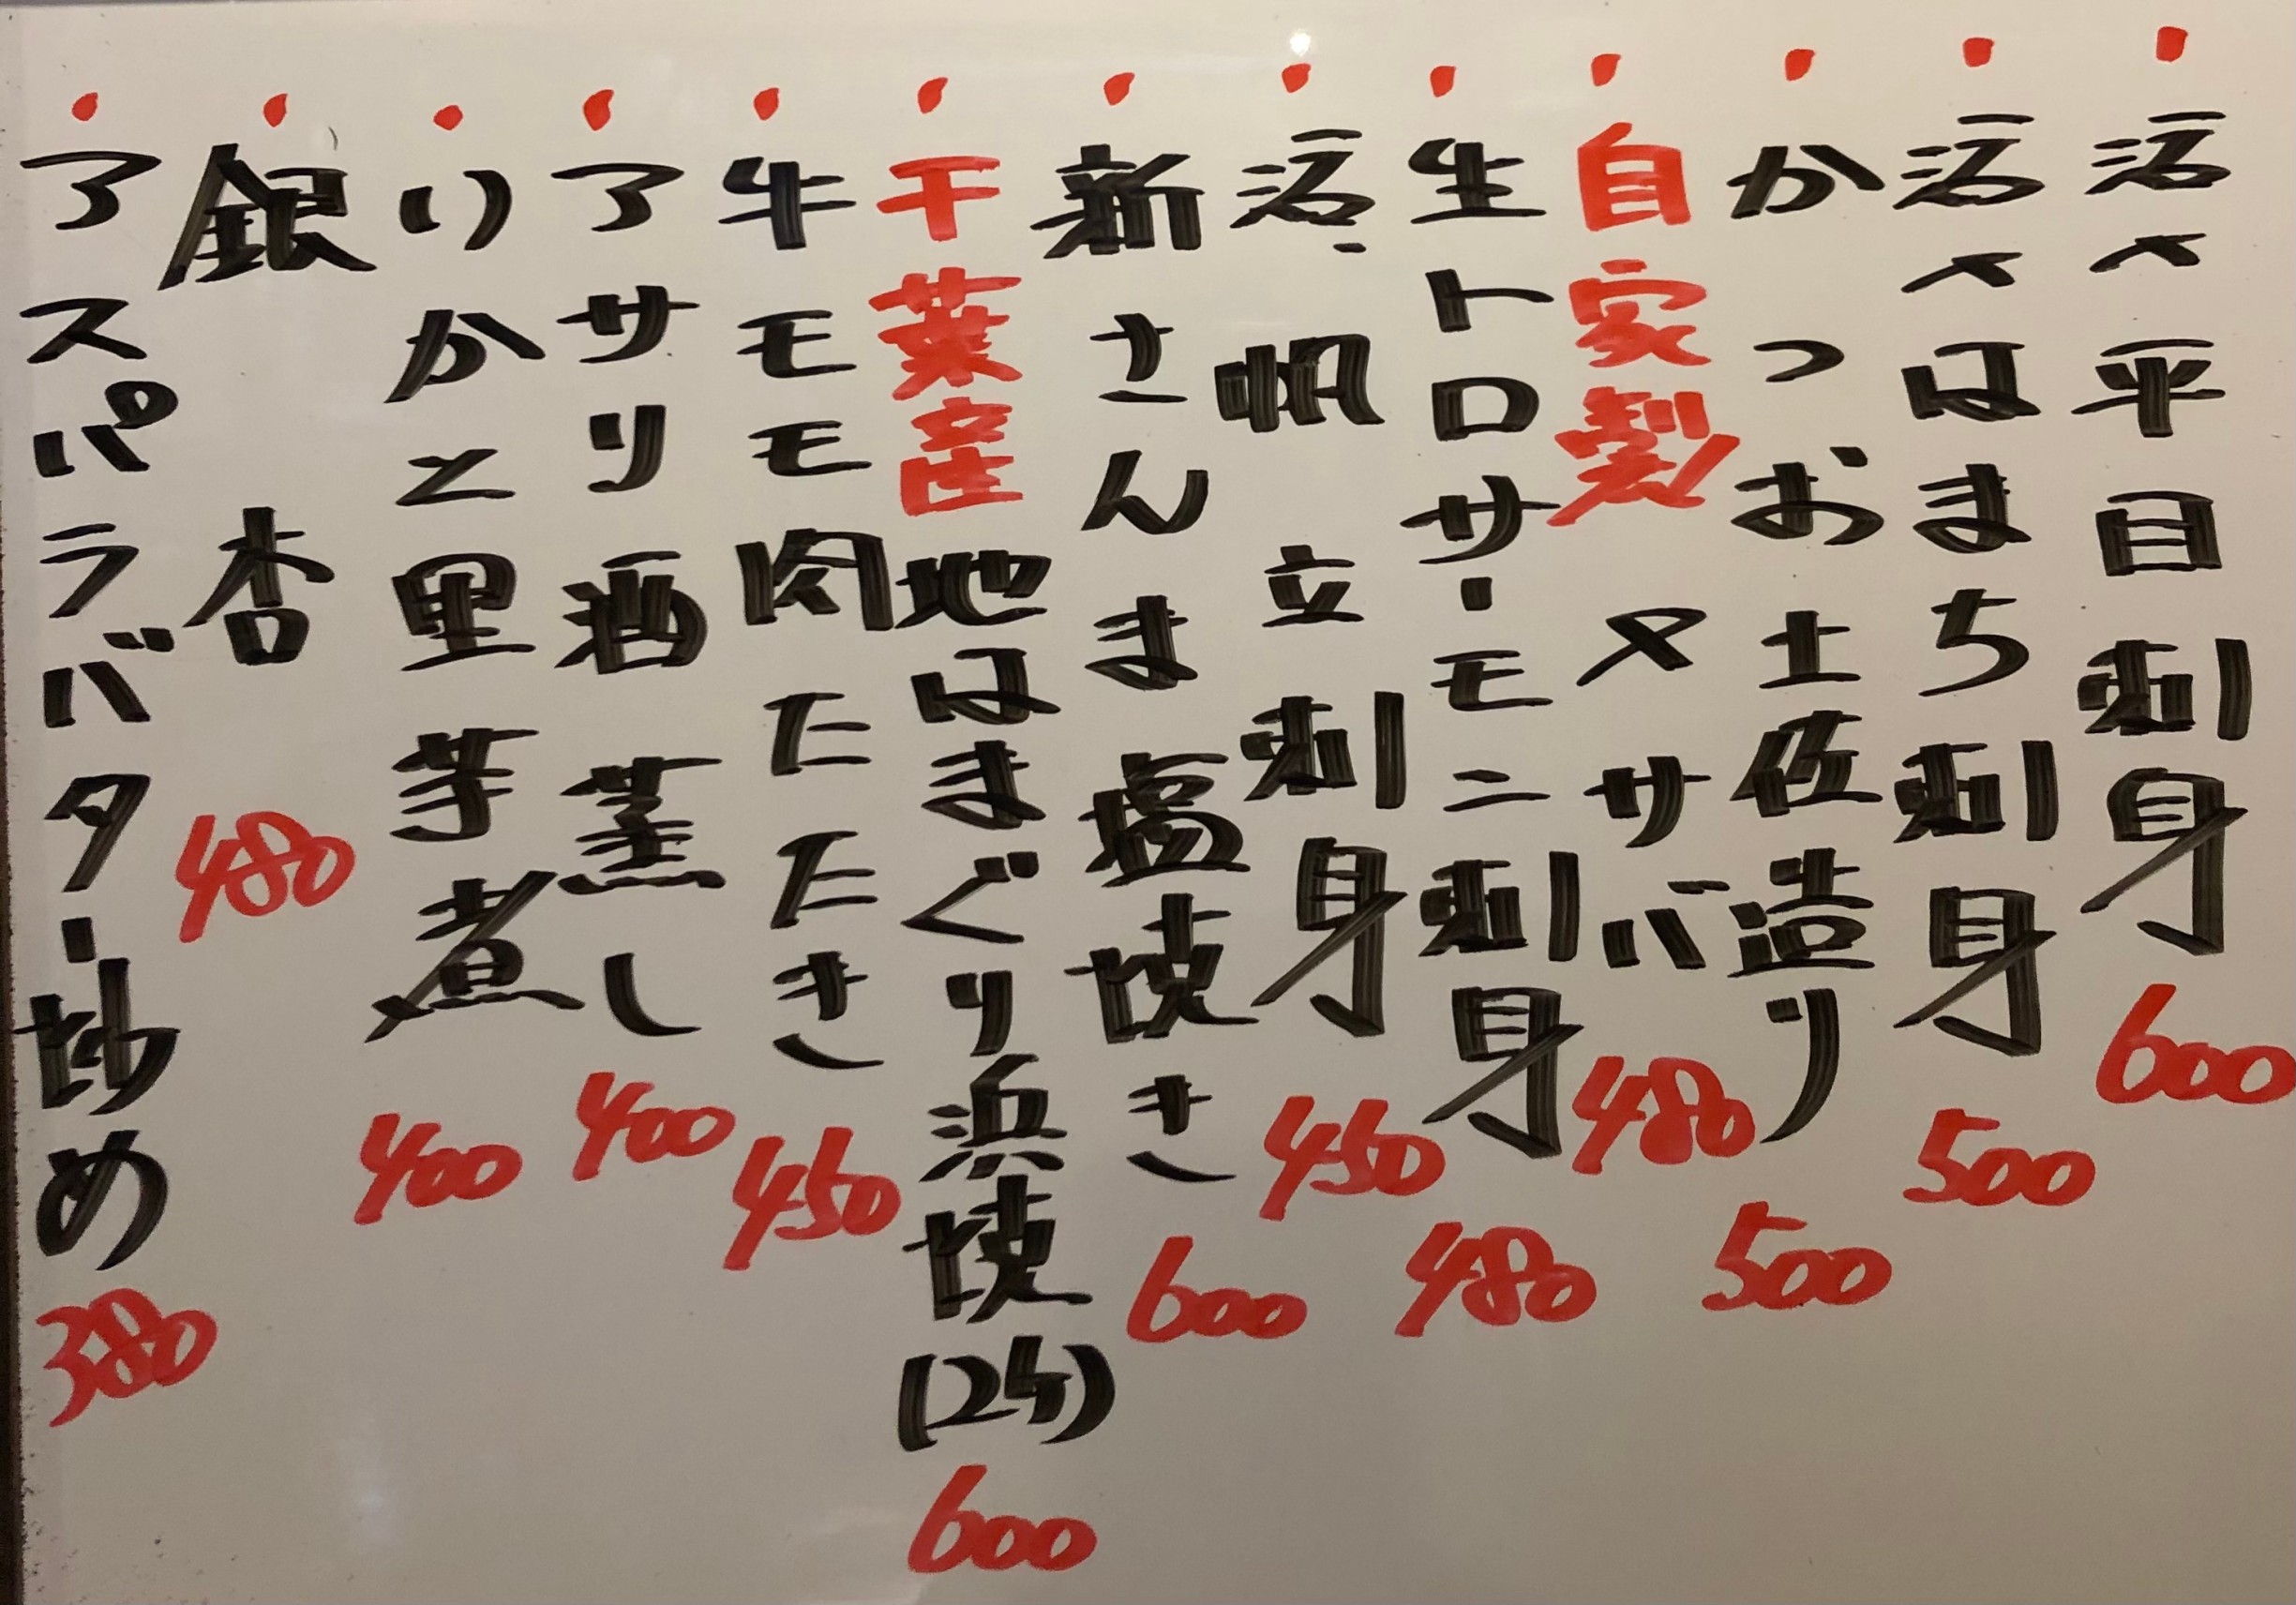 ・活〆平目刺身 600
・活〆はまち刺身 500
・かつお土佐造り 500
・自家製〆サバ 480
・生トロサーモン刺身 480
・活帆立刺身 450
・新さんま塩焼き 600
・千葉産地はまぐり浜焼(2ケ) 600
・牛モモ肉たたき 450
・アサリ酒蒸し 400
・いかと里芋煮 400
・銀杏 480
・アスパラバター炒め 380